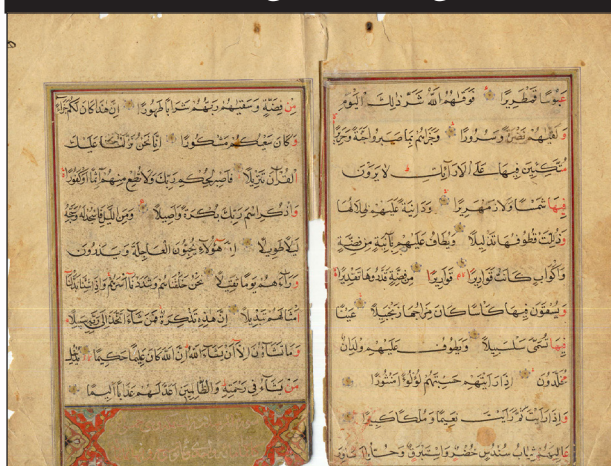 عَبُوسًا قَمْطَرِيرًا فَوَقٰىهُمُ اللّٰهُ شَرَّ ذٰلِكَ الْيَوْمِ
وَلَقّٰىهُمْ نَضْرَةً وَسُرُورًا وَجَزٰىهُمْ بِمَا صَبَرُوا جَنَّةً وَحَرِيرًا
مُتَّكِئِينَ فِيهَا عَلَى الْاَرَآئِكِ لَا يَرَوْنَ
فِيهَا شَمْسًا وَلَا زَمْهَرِيرًا وَدَانِيَةً عَلَيْهِمْ ظِلَالُهَا
وَذُلِّلَتْ قُطُوفُهَا تَذْلِيلًا وَيُطَافُ عَلَيْهِمْ بِآنِيَةٍ مِنْ فِضَّةٍ
وَاَكْوَابٍ كَانَتْ قَوَارِيرَا قَوَارِيرَا مِنْ فِضَّةٍ قَدَّرُوهَا تَقْدِيرًا
وَيُسْقَوْنَ فِيهَا كَاْسًا كَانَ مِزَاجُهَا زَنْجَبِيلًا عَيْنًا
فِيهَا تُسَمّٰى سَلْسَبِيلًا وَيَطُوفُ عَلَيْهِمْ وِلْدَانٌ
مُخَلَّدُونَ اِذَا رَاَيْتَهُمْ حَسِبْتَهُمْ لُؤْلُؤًا مَنْثُورًا
وَاِذَا رَاَيْتَ ثَمَّ رَاَيْتَ نَعِيمًا وَمُلْكًا كَبِيرًا
عَالِيَهُمْ ثِيَابُ سُنْدُسٍ خُضْرٌ وَاِسْتَبْرَقٌ وَحُلُّوا اَسَاوِرَ
مِنْ فِضَّةٍ وَسَقٰىهُمْ رَبُّهُمْ شَرَابًا طَهُورًا اِنَّ هٰذَا كَانَ لَكُمْ جَزَآءً
وَكَانَ سَعْيُكُمْ مَشْكُورًا اِنَّا نَحْنُ نَزَّلْنَا عَلَيْكَ
الْقُرْآنَ تَنْزِيلًا فَاصْبِرْ لِحُكْمِ رَبِّكَ وَلَا تُطِعْ مِنْهُمْ آثِمًا اَوْ كَفُورًا
وَاذْكُرِ اسْمَ رَبِّكَ بُكْرَةً وَاَصِيلًا وَمِنَ اللَّيْلِ فَاسْجُدْ لَهُ وَسَبِّحْهُ
لَيْلًا طَوِيلًا اِنَّ هٰؤُلَآءِ يُحِبُّونَ الْعَاجِلَةَ وَيَذَرُونَ
وَرَآءَهُمْ يَوْمًا ثَقِيلًا نَحْنُ خَلَقْنَاهُمْ وَشَدَدْنَا اَسْرَهُمْ وَاِذَا شِئْنَا بَدَّلْنَا
اَمْثَالَهُمْ تَبْدِيلًا اِنَّ هٰذِهِ تَذْكِرَةٌ فَمَنْ شَآءَ اتَّخَذَ اِلٰى رَبِّهِ سَبِيلًا
وَمَا تَشَآؤُنَ اِلَّا اَنْ يَشَآءَ اللّٰهُ اِنَّ اللّٰهَ كَانَ عَلِيمًا حَكِيمًا يُدْخِلُ
مَنْ يَشَآءُ فِي رَحْمَتِهِ وَالظَّالِمِينَ اَعَدَّ لَهُمْ عَذَابًا اَلِيمًا